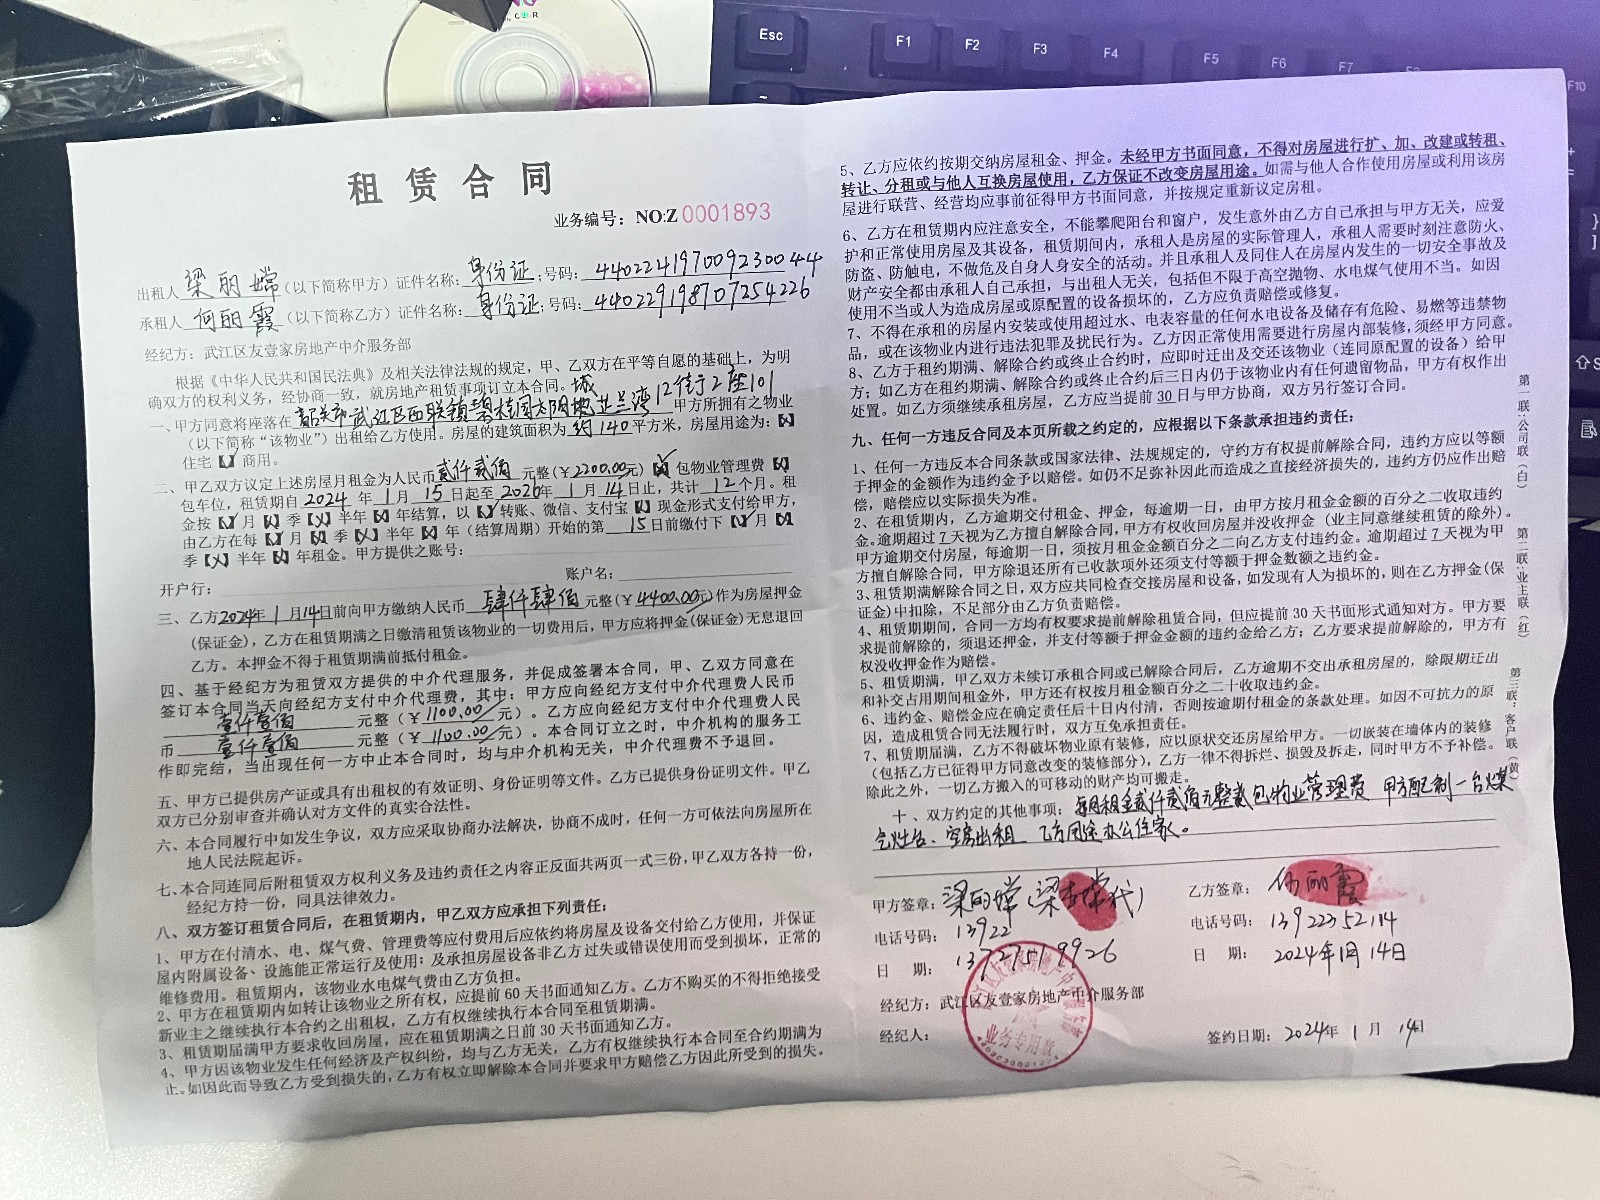 租赁合同
业务编号：NO:Z 0001893
出租人 梁丽嫦 (以下简称甲方) 证件名称：身份证；号码：440224197009230044
承租人 何丽霞 (以下简称乙方) 证件名称：身份证；号码：440229198707254226
经纪方：武江区友壹家房地产中介服务部
根据《中华人民共和国民法典》及相关法律法规的规定，甲、乙双方在平等自愿的基础上，为明
确双方的权利义务，经协商一致，就房地产租赁事项订立本合同。
城
一、甲方同意将座落在 韶关市武江区西联镇碧桂园太阳 芷兰湾12街2座101 甲方所拥有之物业
（以下简称“该物业”）出租给乙方使用。房屋的建筑面积为 约140 平方米，房屋用途为：【】
住宅【】商用。
二、甲乙双方议定上述房屋月租金为人民币 贰仟贰佰 元整(￥2200.00元)【】包物业管理费【】
包车位，租赁期自 2024 年 1 月 15 日起至 2026年 1 月 14 日止，共计 12 个月。租
金按【】月【】季【】半年【】年结算，以【】转账、微信、支付宝【】现金形式支付给甲方，
由乙方在每【】月【】季【】半年【】年（结算周期）开始的第 15 日前缴付下【】月【】
季【】半年【】年租金。甲方提供之账号：
开户行： 账户名：
三、乙方2024年 1 月 14 日前向甲方缴纳人民币 肆仟肆佰 元整(￥4400.00元)作为房屋押金
(保证金)，乙方在租赁期满之日缴清租赁该物业的一切费用后，甲方应将押金(保证金)无息退回
乙方。本押金不得于租赁期满前抵付租金。
四、基于经纪方为租赁双方提供的中介代理服务，并促成签署本合同，甲、乙双方同意在
签订本合同当天向经纪方支付中介代理费，其中：甲方应向经纪方支付中介代理费人民币
壹仟壹佰 元整（￥1100.00 元）。乙方应向经纪方支付中介代理费人民
币 壹仟壹佰 元整（￥1100.00 元）。本合同订立之时，中介机构的服务工
作即完结，当出现任何一方中止本合同时，均与中介机构无关，中介代理费不予退回。
五、甲方已提供房产证或具有出租权的有效证明、身份证明等文件。乙方已提供身份证明文件。甲乙
双方已分别审查并确认对方文件的真实合法性。
六、本合同履行中如发生争议，双方应采取协商办法解决，协商不成时，任何一方可依法向房屋所在
地人民法院起诉。
七、本合同连同后附租赁双方权利义务及违约责任之内容正反面共两页一式三份，甲乙双方各持一份，
经纪方持一份，同具法律效力。
八、双方签订租赁合同后，在租赁期内，甲乙双方应承担下列责任：
1、甲方在付清水、电、煤气费、管理费等应付费用后应依约将房屋及设备交付给乙方使用，并保证
屋内附属设备、设施能正常运行及使用；及承担房屋设备非乙方过失或错误使用而受到损坏，正常的
维修费用。租赁期内，该物业水电煤气费由乙方负担。
2、甲方在租赁期内如转让该物业之所有权，应提前 60 天书面通知乙方。乙方不购买的不得拒绝接受
新业主之继续执行本合约之出租权，乙方有权继续执行本合同至租赁期满。
3、租赁期届满甲方要求收回房屋，应在租赁期满之日前 30 天书面通知乙方。
4、甲方因该物业发生任何经济及产权纠纷，均与乙方无关，乙方有权继续执行本合同至合约期满为
止。如因此而导致乙方受到损失的，乙方有权立即解除本合同并要求甲方赔偿乙方因此所受到的损失。
5、乙方应依约按期交纳房屋租金、押金。未经甲方书面同意，不得对房屋进行扩、加、改建或转租、
转让、分租或与他人互换房屋使用，乙方保证不改变房屋用途。如需与他人合作使用房屋或利用该房
屋进行联营、经营均应事前征得甲方书面同意，并按规定重新议定房租。
6、乙方在租赁期内应注意安全，不能攀爬阳台和窗户，发生意外由乙方自己承担与甲方无关，应爱
护和正常使用房屋及其设备，租赁期间内，承租人是房屋的实际管理人，承租人需要时刻注意防火、
防盗、防触电，不做危及自身人身安全的活动。并且承租人及同住人在房屋内发生的一切安全事故及
财产安全都由承租人自己承担，与出租人无关，包括但不限于高空抛物、水电煤气使用不当。如因
使用不当或人为造成房屋或原配置的设备损坏的，乙方应负责赔偿或修复。
7、不得在承租的房屋内安装或使用超过水、电表容量的任何水电设备及储存有危险、易燃等违禁物
品，或在该物业内进行违法犯罪及扰民行为。乙方因正常使用需要进行房屋内部装修，须经甲方同意。
8、乙方于租约期满、解除合约或终止合约时，应即时迁出及交还该物业（连同原配置的设备）给甲
方；如乙方在租约期满、解除合约或终止合约后三日内仍于该物业内有任何遗留物品，甲方有权作出
处置。如乙方须继续承租房屋，乙方应当提前 30 日与甲方协商，双方另行签订合同。
九、任何一方违反合同及本页所载之约定的，应根据以下条款承担违约责任：
1、任何一方违反本合同条款或国家法律、法规规定的，守约方有权提前解除合同，违约方应以等额
于押金的金额作为违约金予以赔偿。如仍不足弥补因此而造成之直接经济损失的，违约方仍应作出赔
偿，赔偿应以实际损失为准。
2、在租赁期内，乙方逾期交付租金、押金，每逾期一日，由甲方按月租金金额的百分之二收取违约
金。逾期超过 7 天视为乙方擅自解除合同，甲方有权收回房屋并没收押金（业主同意继续租赁的除外）。
甲方逾期交付房屋，每逾期一日，须按月租金金额百分之二向乙方支付违约金。逾期超过 7 天视为甲
方擅自解除合同，甲方除退还所有已收款项外还须支付等额于押金数额之违约金。
3、租赁期满解除合同之日，双方应共同检查交接房屋和设备，如发现有人为损坏的，则在乙方押金(保
证金)中扣除，不足部分由乙方负责赔偿。
4、租赁期期间，合同一方均有权要求提前解除租赁合同，但应提前 30 天书面形式通知对方。甲方要
求提前解除的，须退还押金，并支付等额于押金金额的违约金给乙方；乙方要求提前解除的，甲方有
权没收押金作为赔偿。
5、租赁期满，甲乙双方未续订承租合同或已解除合同后，乙方逾期不交出承租房屋的，除限期迁出
和补交占用期间租金外，甲方还有权按月租金额百分之二十收取违约金。
6、违约金、赔偿金应在确定责任后十日内付清，否则按逾期付租金的条款处理。如因不可抗力的原
因，造成租赁合同无法履行时，双方互免承担责任。
7、租赁期届满，乙方不得破坏物业原有装修，应以原状交还房屋给甲方。一切嵌装在墙体内的装修
（包括乙方已征得甲方同意改变的装修部分），乙方一律不得拆烂、损毁及拆走，同时甲方不予补偿。
除此之外，一切乙方搬入的可移动的财产均可搬走。
十、双方约定的其他事项：每月租金贰仟贰佰元整 包物业管理费 甲方配制一台煤
气灶台、空房出租 乙方用途办公住家。
甲方签章：梁丽嫦（梁 嫦代）
乙方签章：何丽霞
电话号码：13922
电话号码：13922352114
13727519926
日 期：
日 期：2024年1月14日
经纪方：武江区友壹家房地产中介服务部
经纪人：
签约日期：2024年 1 月 14日
业务专用章
第一联：公司联（白）
第二联：业主联（红）
第三联：客户联（黄）
Esc
F1
F2
F3
F4
F5
F6
F7
F10